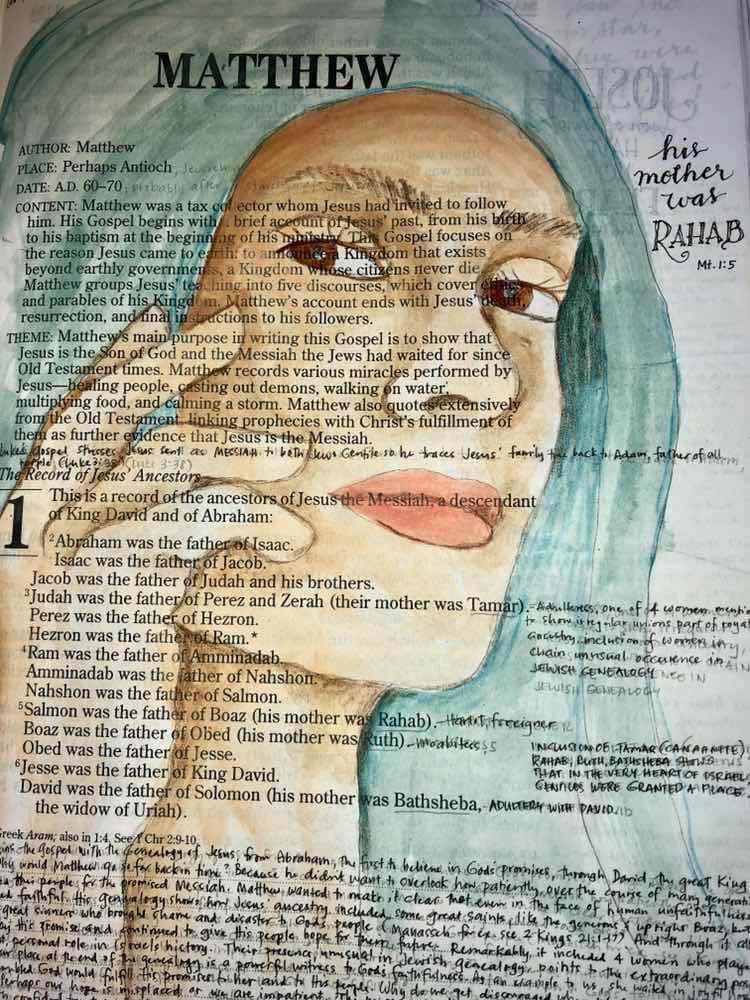 MATTHEW
AUTHOR: Matthew
PLACE: Perhaps Antioch
DATE: A.D. 60–70
CONTENT: Matthew was a tax collector whom Jesus had invited to follow
him. His Gospel begins with a brief account of Jesus' past, from his birth
to his baptism at the beginning of his ministry. This Gospel focuses on
the reason Jesus came to earth: to announce a Kingdom that exists
beyond earthly governments, a Kingdom whose citizens never die.
Matthew groups Jesus' teaching into five discourses, which cover ethics
and parables of his Kingdom. Matthew's account ends with Jesus' death,
resurrection, and final instructions to his followers.
THEME: Matthew's main purpose in writing this Gospel is to show that
Jesus is the Son of God and the Messiah the Jews had waited for since
Old Testament times. Matthew records various miracles performed by
Jesus—healing people, casting out demons, walking on water,
multiplying food, and calming a storm. Matthew also quotes extensively
from the Old Testament, linking prophecies with Christ's fulfillment of
them as further evidence that Jesus is the Messiah.
his
mother
was
RAHAB
Mt. 1:5
Luke's gospel stresses Jesus sent as MESSIAH to both Jews Gentile so he traces Jesus' family tree back to Adam, father of all
people (Luke 3:38)
The Record of Jesus' Ancestors
1 This is a record of the ancestors of Jesus the Messiah, a descendant
of King David and of Abraham:
2 Abraham was the father of Isaac.
Isaac was the father of Jacob.
Jacob was the father of Judah and his brothers.
3 Judah was the father of Perez and Zerah (their mother was Tamar).
Perez was the father of Hezron.
Hezron was the father of Ram.*
4 Ram was the father of Amminadab.
Amminadab was the father of Nahshon.
Nahshon was the father of Salmon.
5 Salmon was the father of Boaz (his mother was Rahab). - Harlot, foreigner
Boaz was the father of Obed (his mother was Ruth). - Moabitess
Obed was the father of Jesse.
6 Jesse was the father of King David.
David was the father of Solomon (his mother was Bathsheba, - ADULTERY WITH DAVID
the widow of Uriah).
one of 4 women
to show irregular unions part of royal
inclusion of women in
chain unusual occurence in
JEWISH GENEALOGY
INCLUSION OF TAMAR (CANAANITE)
RAHAB, RUTH, BATHSHEBA SHOWS
THAT IN THE VERY HEART OF ISRAEL
GENTILES WERE GRANTED A PLACE.
Greek Aram; also in 1:4. See 1 Chr 2:9-10.
the Gospel with the Genealogy of Jesus, from Abraham, the first to believe in God's promises, through David, the great King
would Matthew go so far back in time? Because he didn't want to overlook how patiently, over the course of many
this people for the promised Messiah. Matthew wanted to make it clear that even in the face of human unfaithfulness
faithful. His genealogy shows how Jesus' ancestry included some great saints, like the generous & upright Boaz, but
great sinners who brought shame and disaster to God's people (Manasseh for ex. see 2 Kings 21:1-17) And through it all
his promise and continued to give his people hope for their future. Remarkably, it included 4 women who
personal role in Israel's history. Their presence, unusual in Jewish genealogy, points to the extraordinary
place at the end of the genealogy is a powerful witness to God's faithfulness. As an example to us, she waited in
God would fulfill His promises to her and to His people. Why do we get discouraged
our hope is misplaced or we are impatient.